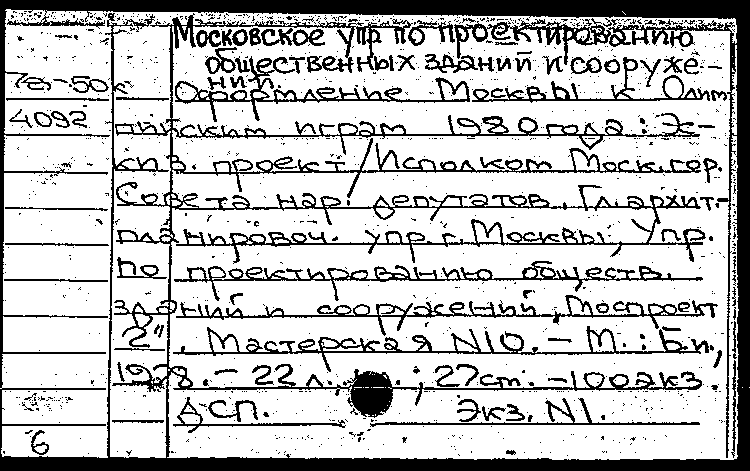 Московское упр по проектированию
общественных зданий и сооруже-
ний.
78-50к Оформление Москвы к Олим
4092 пийским играм 1980 года: Эс-
киз. проект / Исполком Моск.гор.
Совета нар. депутатов. Гл. архит.-
планировоч. упр. г. Москвы, Упр.
по проектированию обществ.
зданий и сооружений, Моспроект
2". Мастерская N10. - М.: Б.и.,
1978. - 22 л., ; 27 см. - 100 экз.
ДСП. Экз. N1.
6